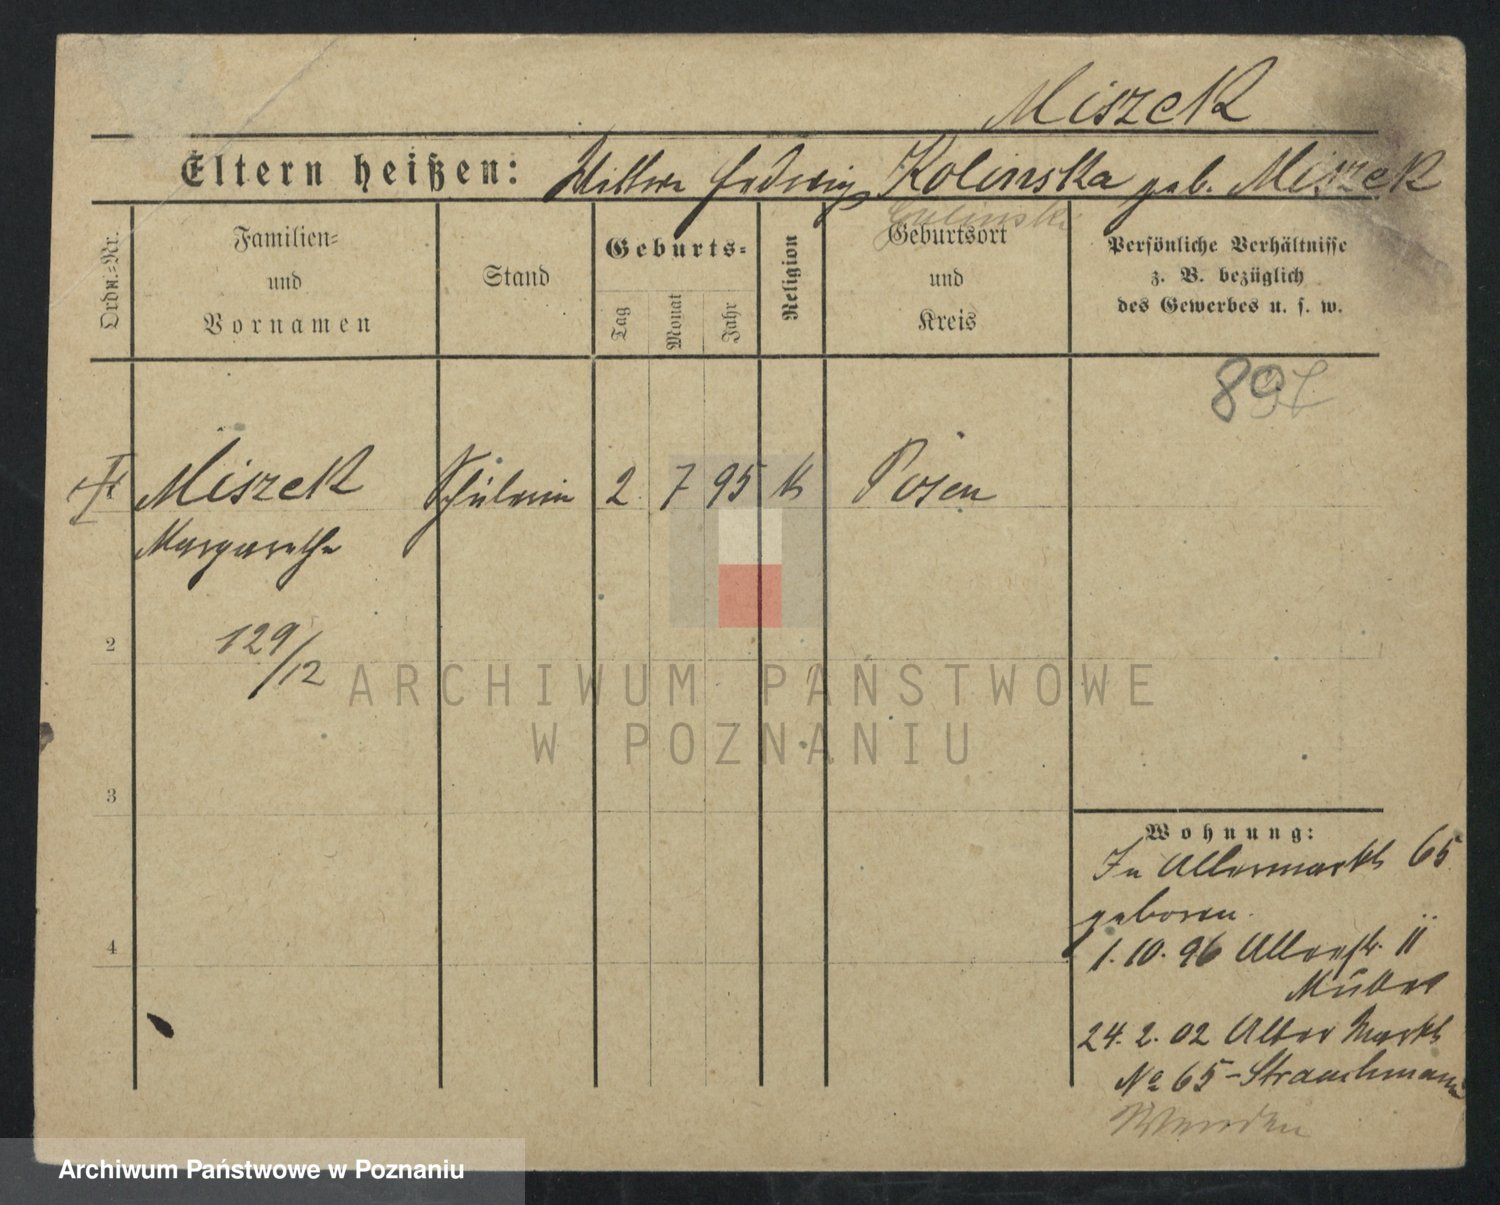 Miszek
Eltern heißen: Wittwe Hedwig Kolinska geb. Miszek
Golinska
Ordn.=Nr.
Familien=
und
Vornamen
Stand
Geburts=
Tag
Monat
Jahr
Religion
Geburtsort
und
Kreis
Persönliche Verhältnisse
z. B. bezüglich
des Gewerbes u. s. w.
897
Miszek Schülerin 2 7 95 k Posen
Margarethe
129/12
2
3
4
ARCHIWUM PAŃSTWOWE
W POZNANIU
Wohnung:
In Altermarkt 65
geboren.
1. 10. 96 Allerstr. 11
Mutter
24. 2. 02 Alter Markt
No 65 - Strauchmann
Archiwum Państwowe w Poznaniu